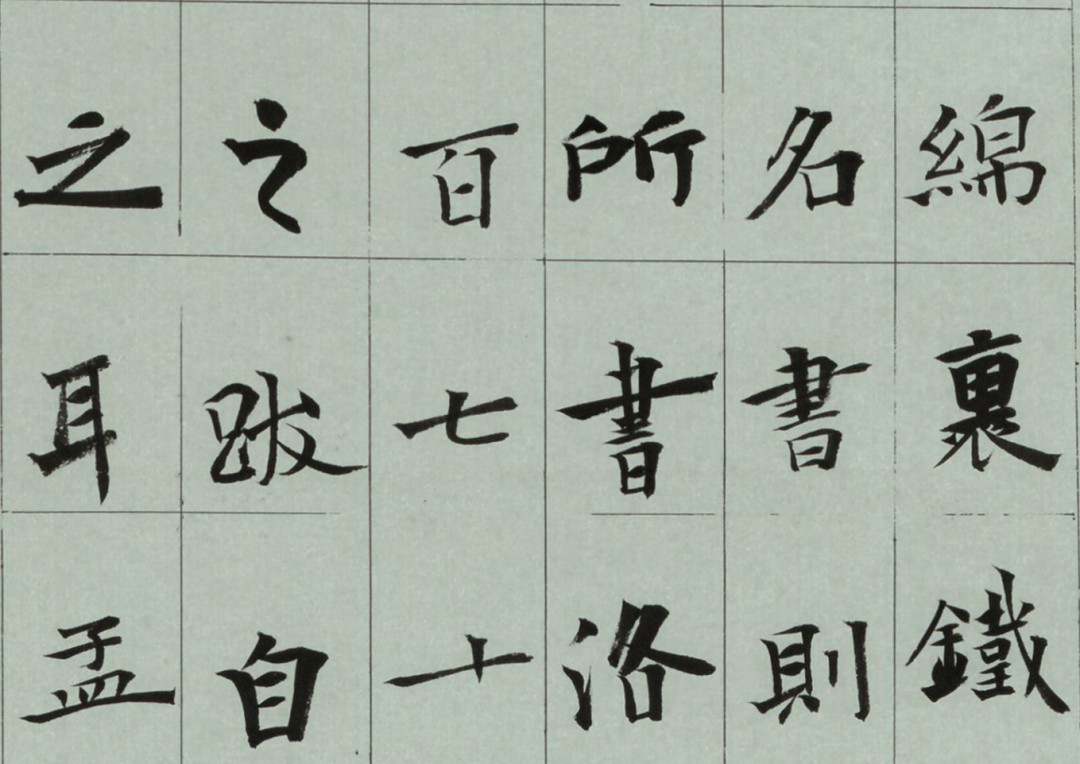 綿裏鐵
名書則
所書洛
百七十
之跋自
之耳孟